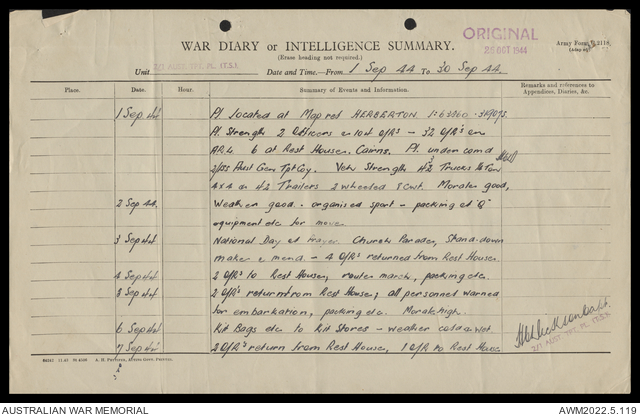 ORIGINAL
26 OCT 1944
WAR DIARY or INTELLIGENCE SUMMARY.
(Erase heading not required.)
Army Form C. 2118
Unit 2/1 AUST TPT. PL (T.S.)
Date and Time.—From 1 Sep 44 To 30 Sep 44.
Place. Date. Hour. Summary of Events and Information. Remarks and references to Appendices, Diaries, &c.
1 Sep 44 Pl located at Map ref HERBERTON 1:63360
Pl Strength 2 Officers & O/R's - 32 O/R's on
ARL 6 at Rest House, Cairns. Pl under comd
2/155 Aust Gen Tpt Coy. Veh Strength 42 Trucks Ton
4x4 & 42 Trailers 2 wheeled Cwt. Morale good,
2 Sep 44 Weather good - organised sport - packing of "Q"
equipment etc for move.
3 Sep 44 National Day of Prayer. Church Parades, Stand-down
make & mend - 4 O/R's returned from Rest House.
4 Sep 44 2 O/R's to Rest House, route march, packing etc.
5 Sep 44 2 O/R's return from Rest House, all personnel warned
for embarkation, packing etc. Morale high.
6 Sep 44 Kit Bags etc to Kit Stores - weather cold & wet.
7 Sep 44 2 O/R's return from Rest House, 1 O/R to Rest House
Capt.
2/1 AUST TPT. PL (T.S.)
AUSTRALIAN WAR MEMORIAL
AWM2022.5.119